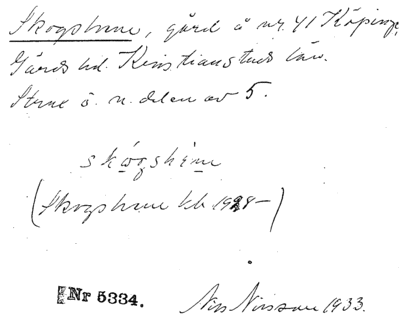 Skogshem, gård å nr. 41 Köpinge,
Gärds hd. Kristianstads län.
i ö. n. delen av 5.
skogshem
(Skogshem kb 1929–)
Nr 5334.
Nils Nilsson 1933.